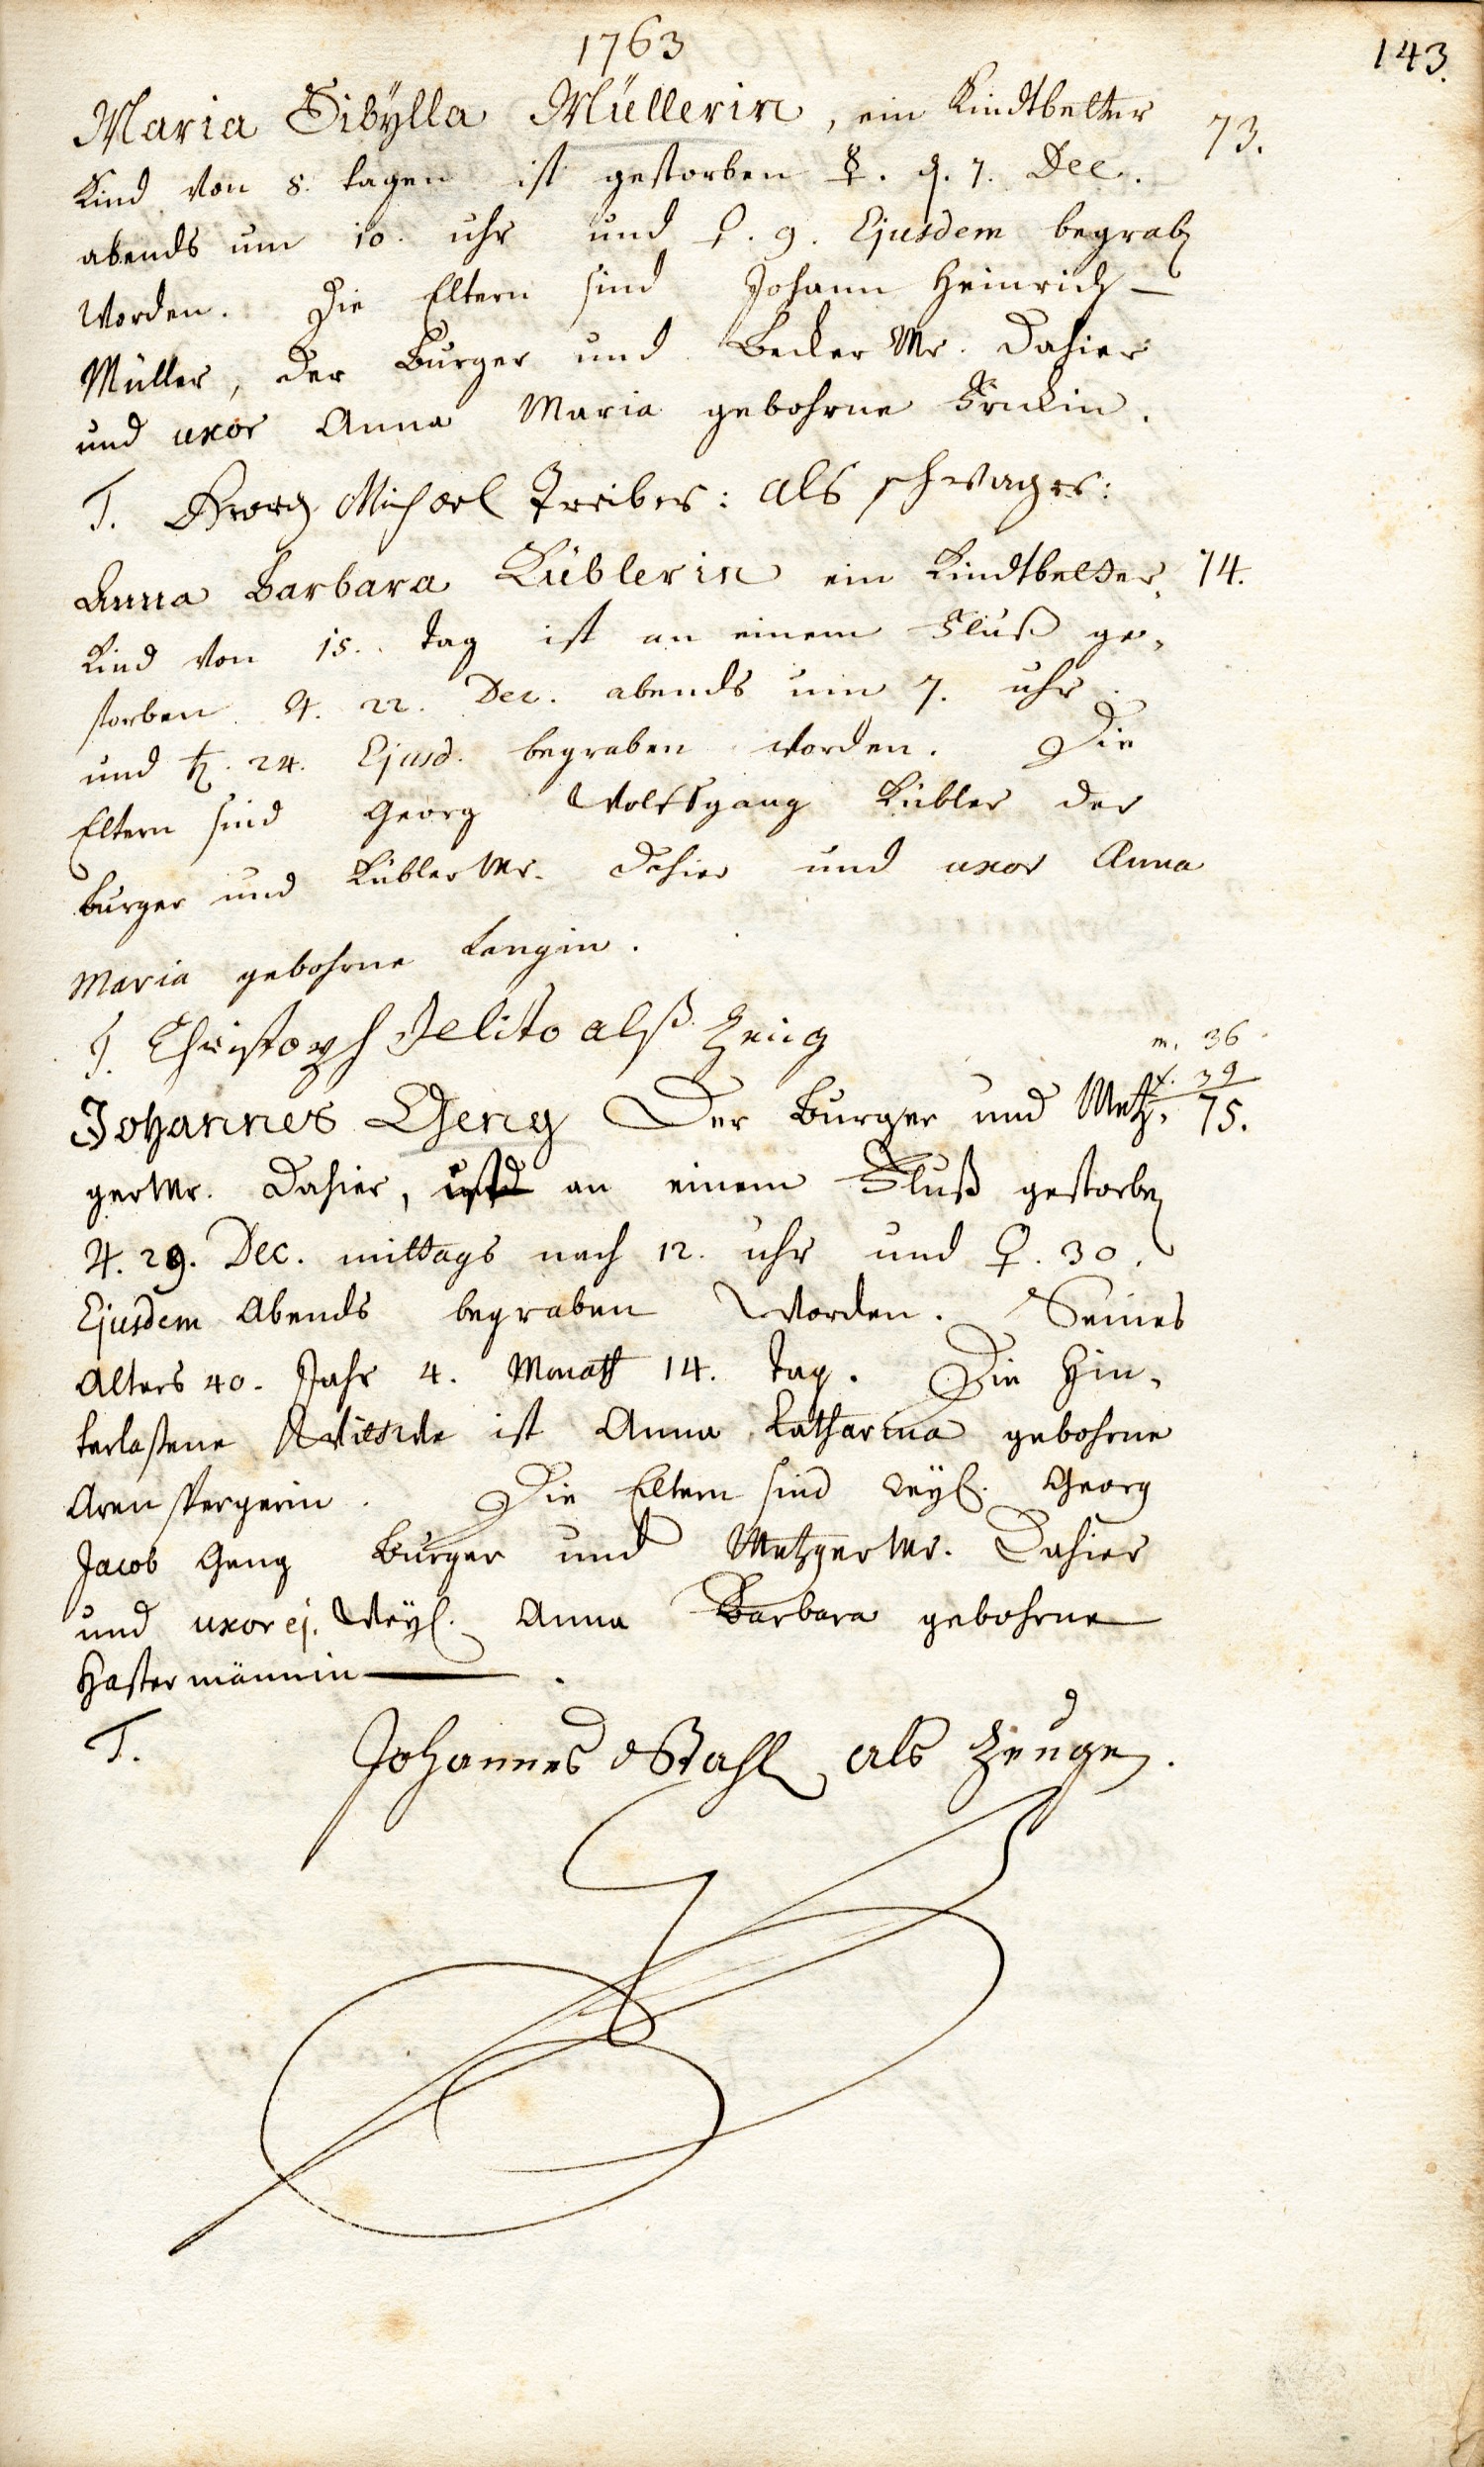 1763
143.
Maria Sibÿlla Müllerin, ein Kindtbetter 73.
Kind von 8. tagen ist gestorben ☿. d. 7. Dec.
abends um 10. uhr und ♀. 9. Ejusdem begraben
worden. Die Eltern sind Johann Heinrich
Müller, der Burger und Becker Mr. dahier
und uxor Anna Maria gebohrne
T. Georg Michael Treiber: als schwager:
Anna Barbara Küblerin ein Kindtbetter, 74.
Kind von 15. tag ist an einem Fluß ge,
storben ♃. 22. Dec. abends um 7. uhr
und ♄. 24. Ejusd. begraben worden. Die
Eltern sind Georg Wolffgang Kübler der
burger und Kübler Mr. dahier und uxor Anna
Maria gebohrne Langin.
T. Christoph Jelito alß Zeug
m. 36
f. 39
Johannes Geng Der Burger und Metz, 75.
ger Mr. Dahier, ist an einem Fluß gestorben
♃. 29. Dec. mittags nach 12. uhr und ♀. 30.
Ejusdem Abends begraben worden. Seines
Alters 40. Jahr 4. Monath 14. tag. Die Hin,
terlaßene Wittwe ist Anna Catharina gebohrne
Arenspergerin. Die Eltern sind weyl. Georg
Jacob Geng Burger und Metzger Mr. Dahier
und uxor ej. Weÿl. Anna Barbara gebohrne
Hastermännin
T. Johannes Stahl als Zeugen.